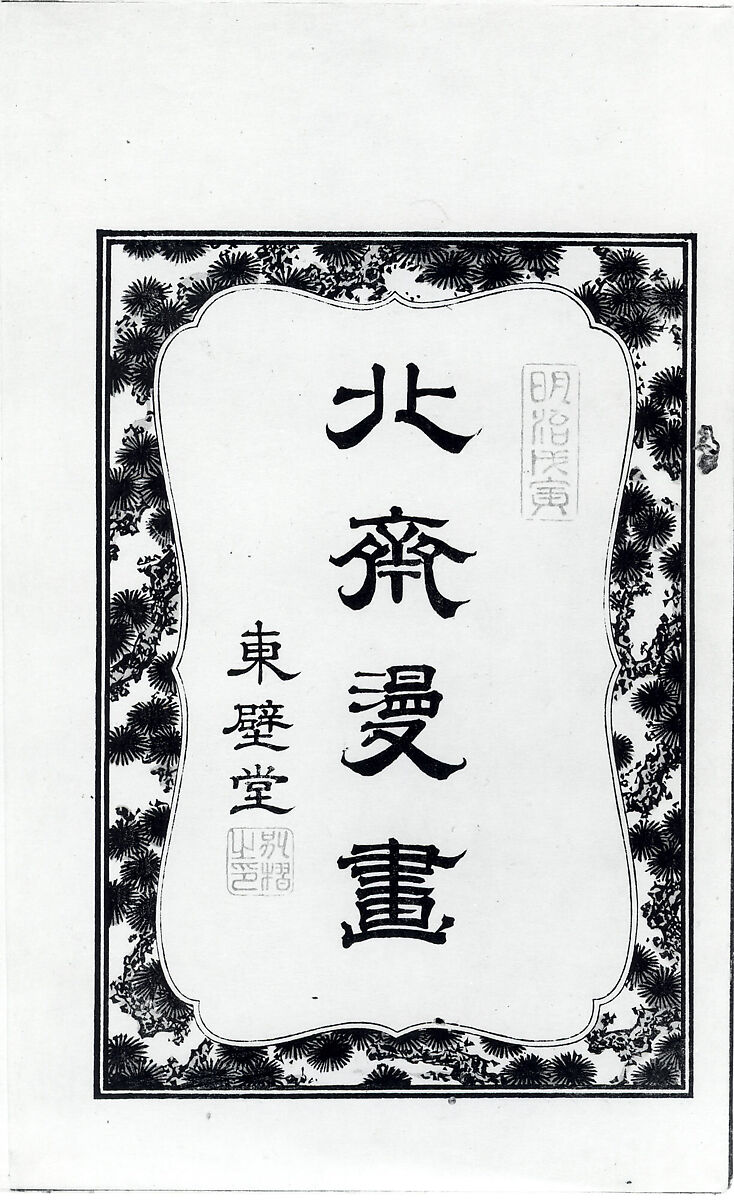 明治戊寅
北齋漫畫
東壁堂
別摺之印